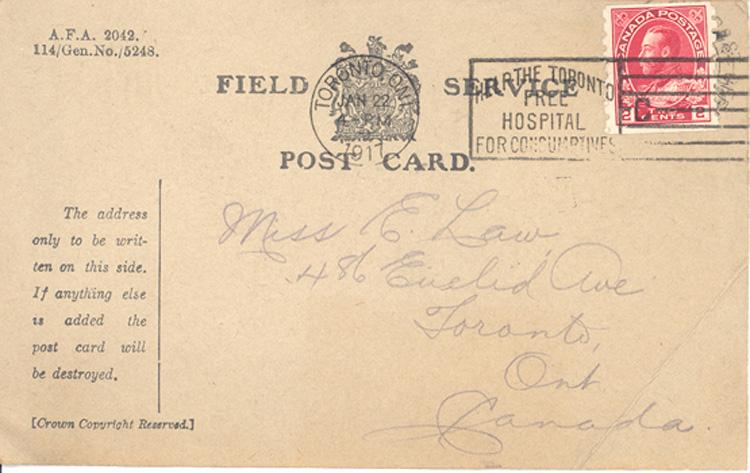 A.F.A. 2042.
114/Gen.No./5248.
FIELD SERVICE
POST CARD.
TORONTO, ONT.
JAN 22
4 - PM
1917
THE TORONTO
FREE
HOSPITAL
FOR CONSUMPTIVES
CANADA POSTAGE
2 CENTS 2
The address
only to be writ-
ten on this side.
If anything else
is added the
post card will
be destroyed.
[Crown Copyright Reserved.]
Miss E. Law
486 Euclid Ave
Toronto,
Ont
Canada.